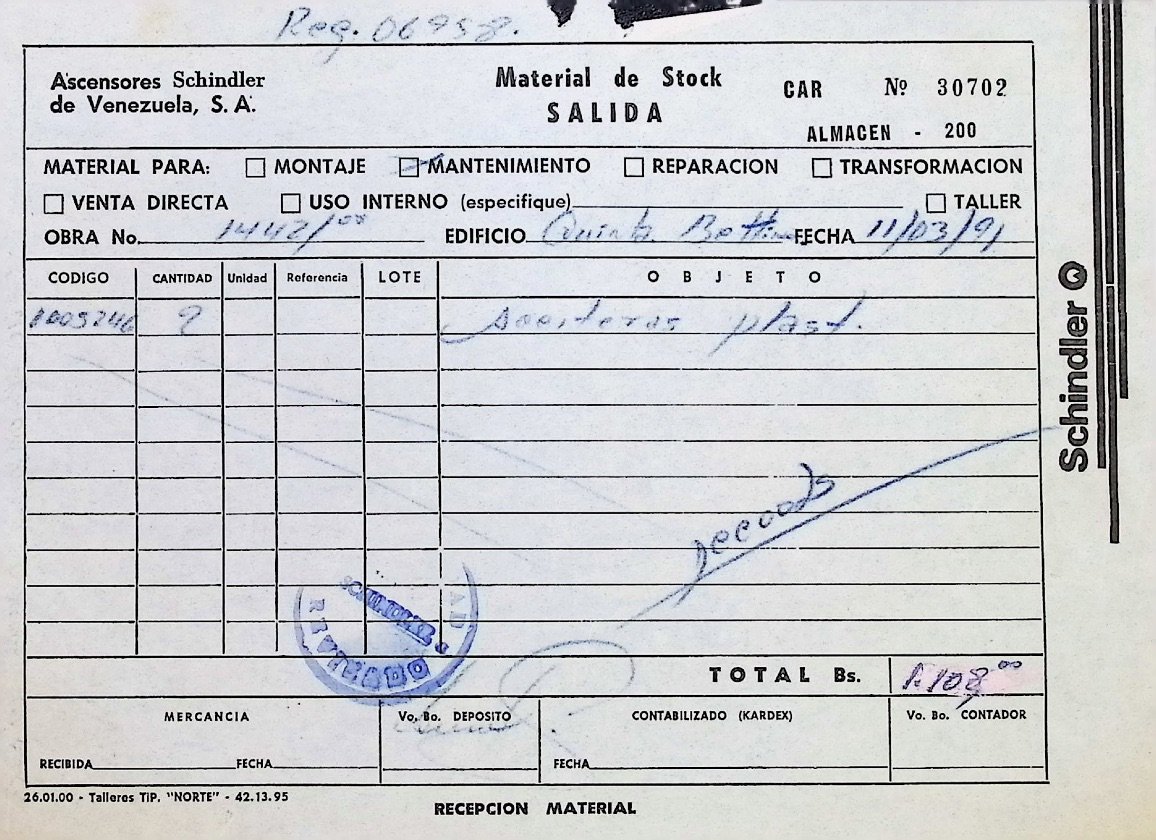 Reg. 06958.
Ascensores Schindler
de Venezuela, S. A.
Material de Stock
SALIDA
CAR Nº 30702
ALMACEN - 200
MATERIAL PARA: MONTAJE MANTENIMIENTO REPARACION TRANSFORMACION
VENTA DIRECTA USO INTERNO (especifique) TALLER
OBRA No. 1442/00 EDIFICIO Quinta FECHA 11/03/91
CODIGO CANTIDAD Unidad Referencia LOTE OBJETO
Aceiteras plast.
Schindler
SCHINDLER
REVISADO
TOTAL Bs. 1.108,00
MERCANCIA Vo. Bo. DEPOSITO CONTABILIZADO (KARDEX) Vo. Bo. CONTADOR
RECIBIDA FECHA FECHA
26.01.00 - Talleres TIP. "NORTE" - 42.13.95
RECEPCION MATERIAL